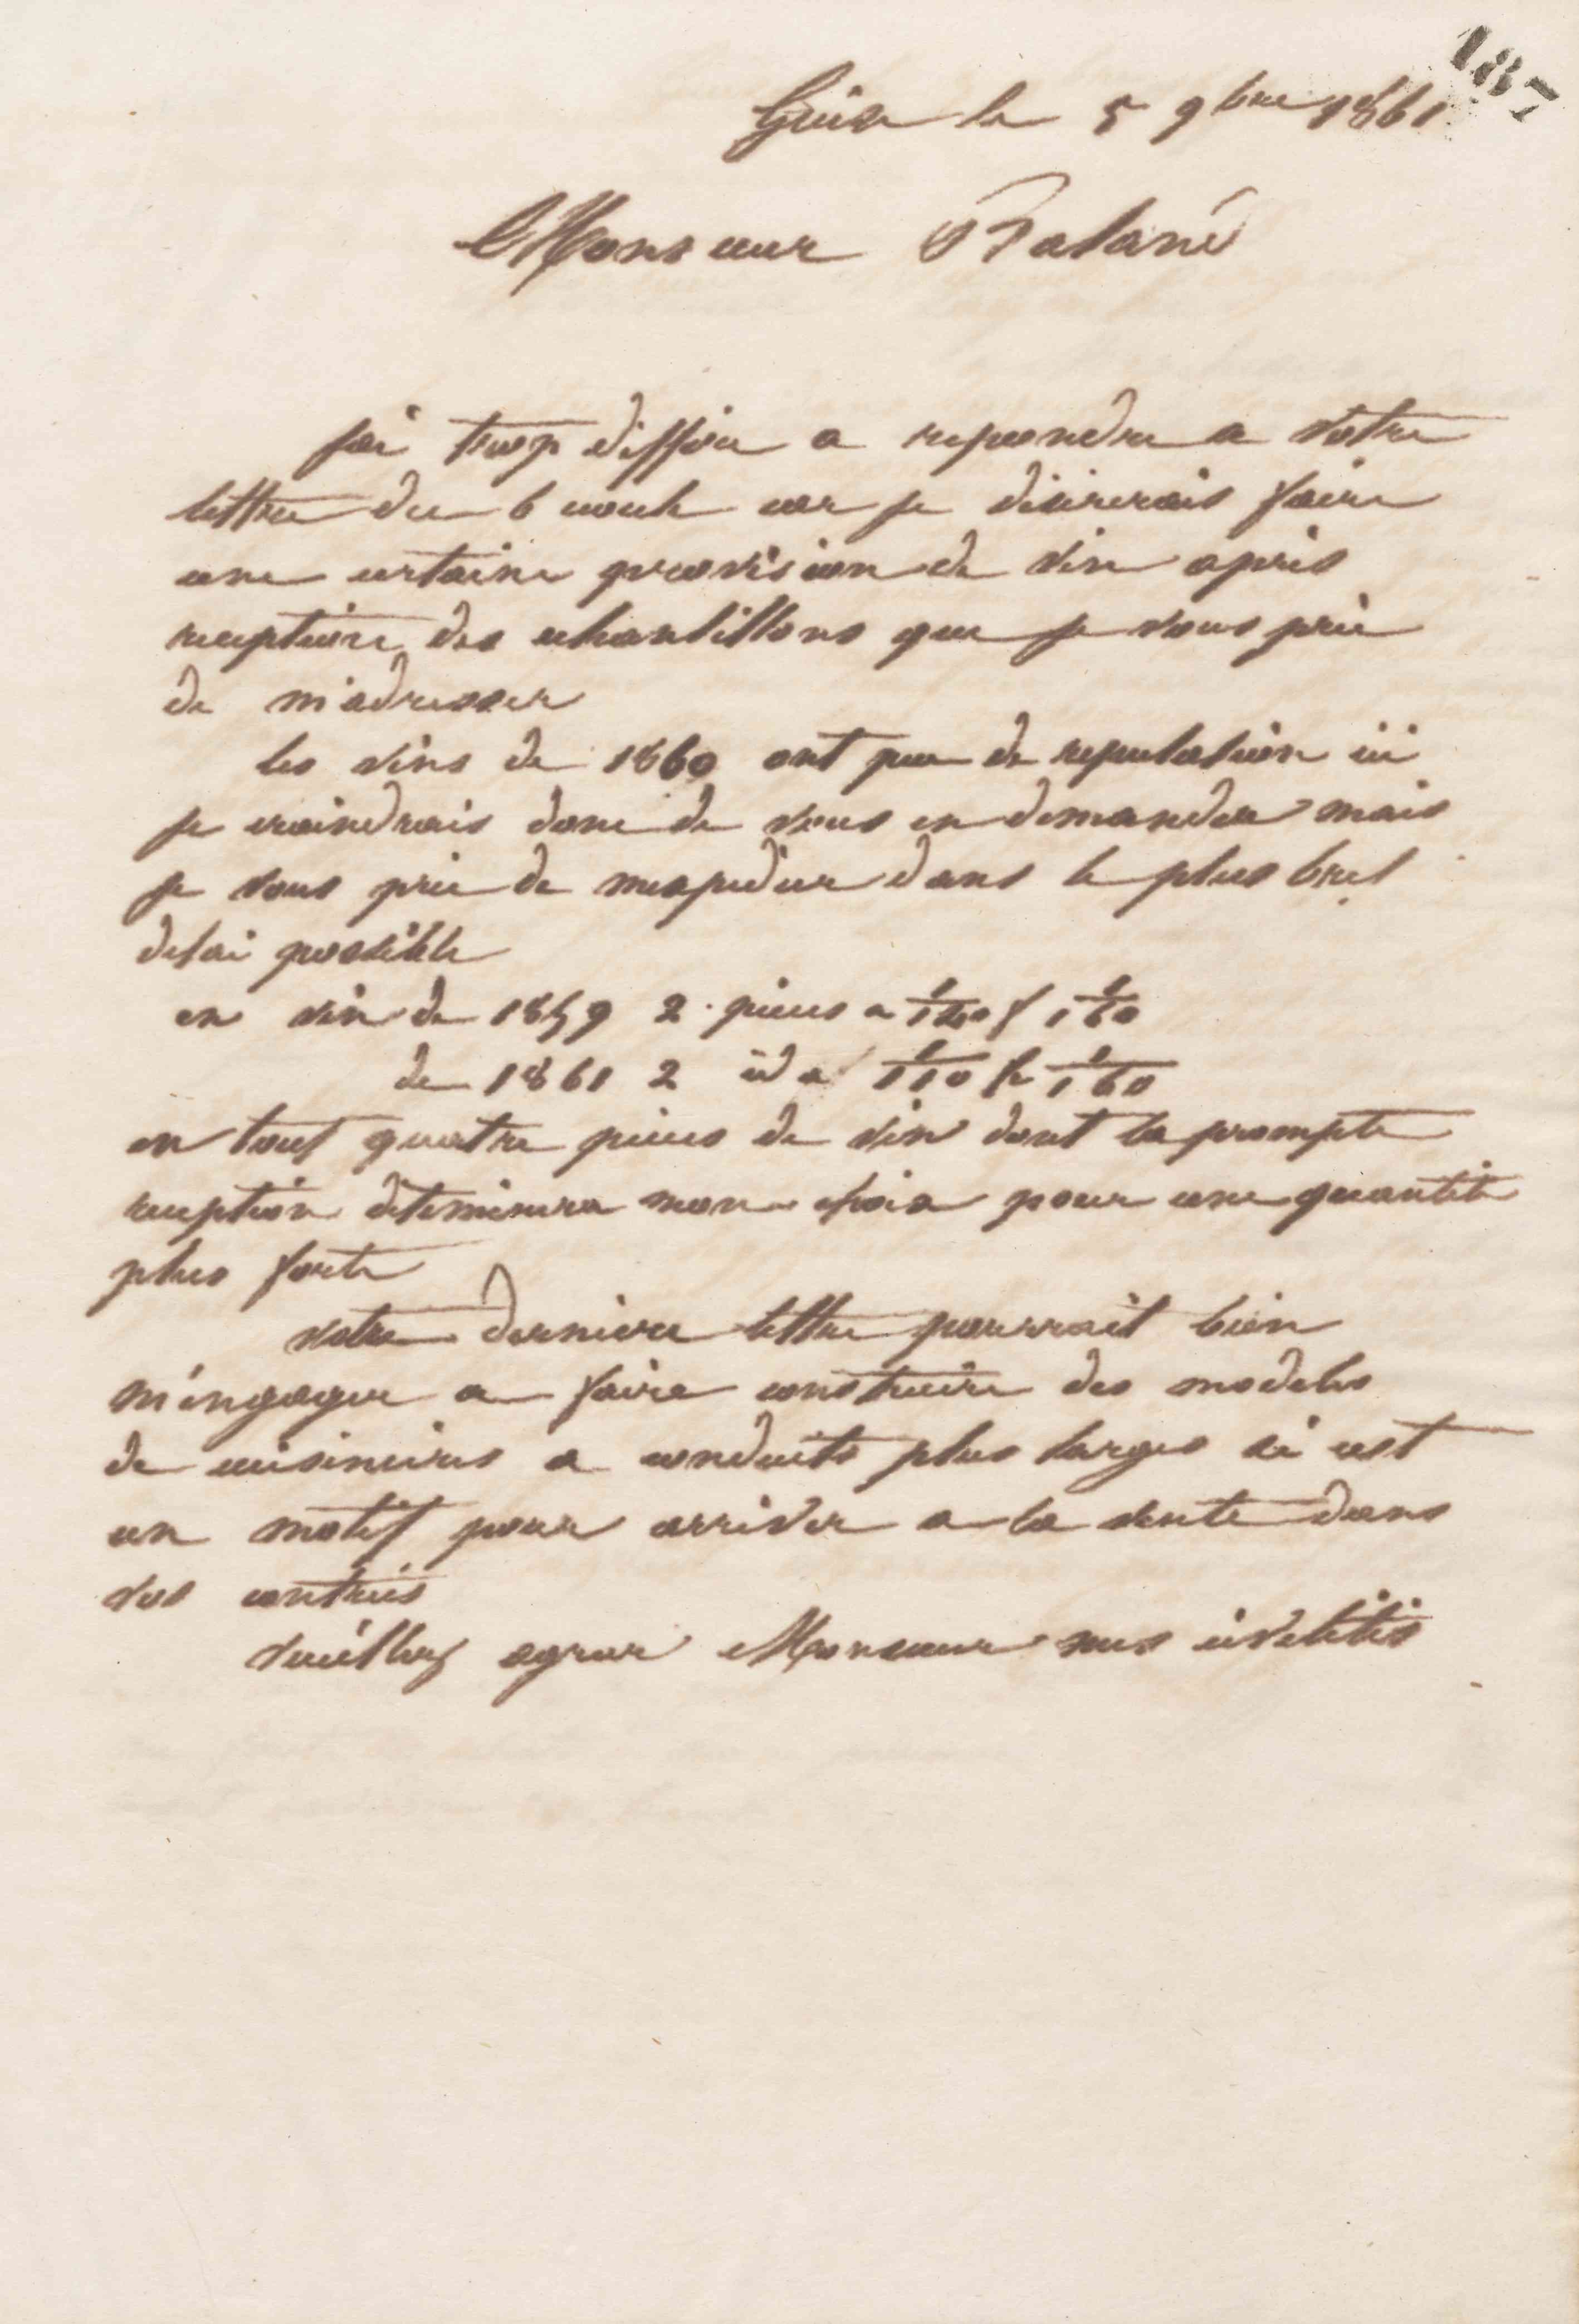 187
Guise le 5 9bre 1861
Monsieur Balané
j'ai trop differé a repondre a votre
lettre du 6 aout car je désirerais faire
une certaine provision de vin apres
reception des echantillons que je vous prie
de m'adresser
les vins de 1860 ont peu de reputation ici
je craindrais donc de vous en demander mais
je vous prie de mexpedier dans le plus bref
delai possible
en vin de 1859 2 pieces a 1/120 f 1/160
de 1861 2 id a 1/110 f 1/160
en tout quatre pieces de vin dont la prompte
reception determinera mon choix pour une quantité
plus forte
votre derniere lettre pourrait bien
m'engager a faire construire des modeles
de cuisinieres a conduits plus larges si cest
un motif pour arriver a la vente dans
vos contrées
veuillez agreer Monsieur mes civilités